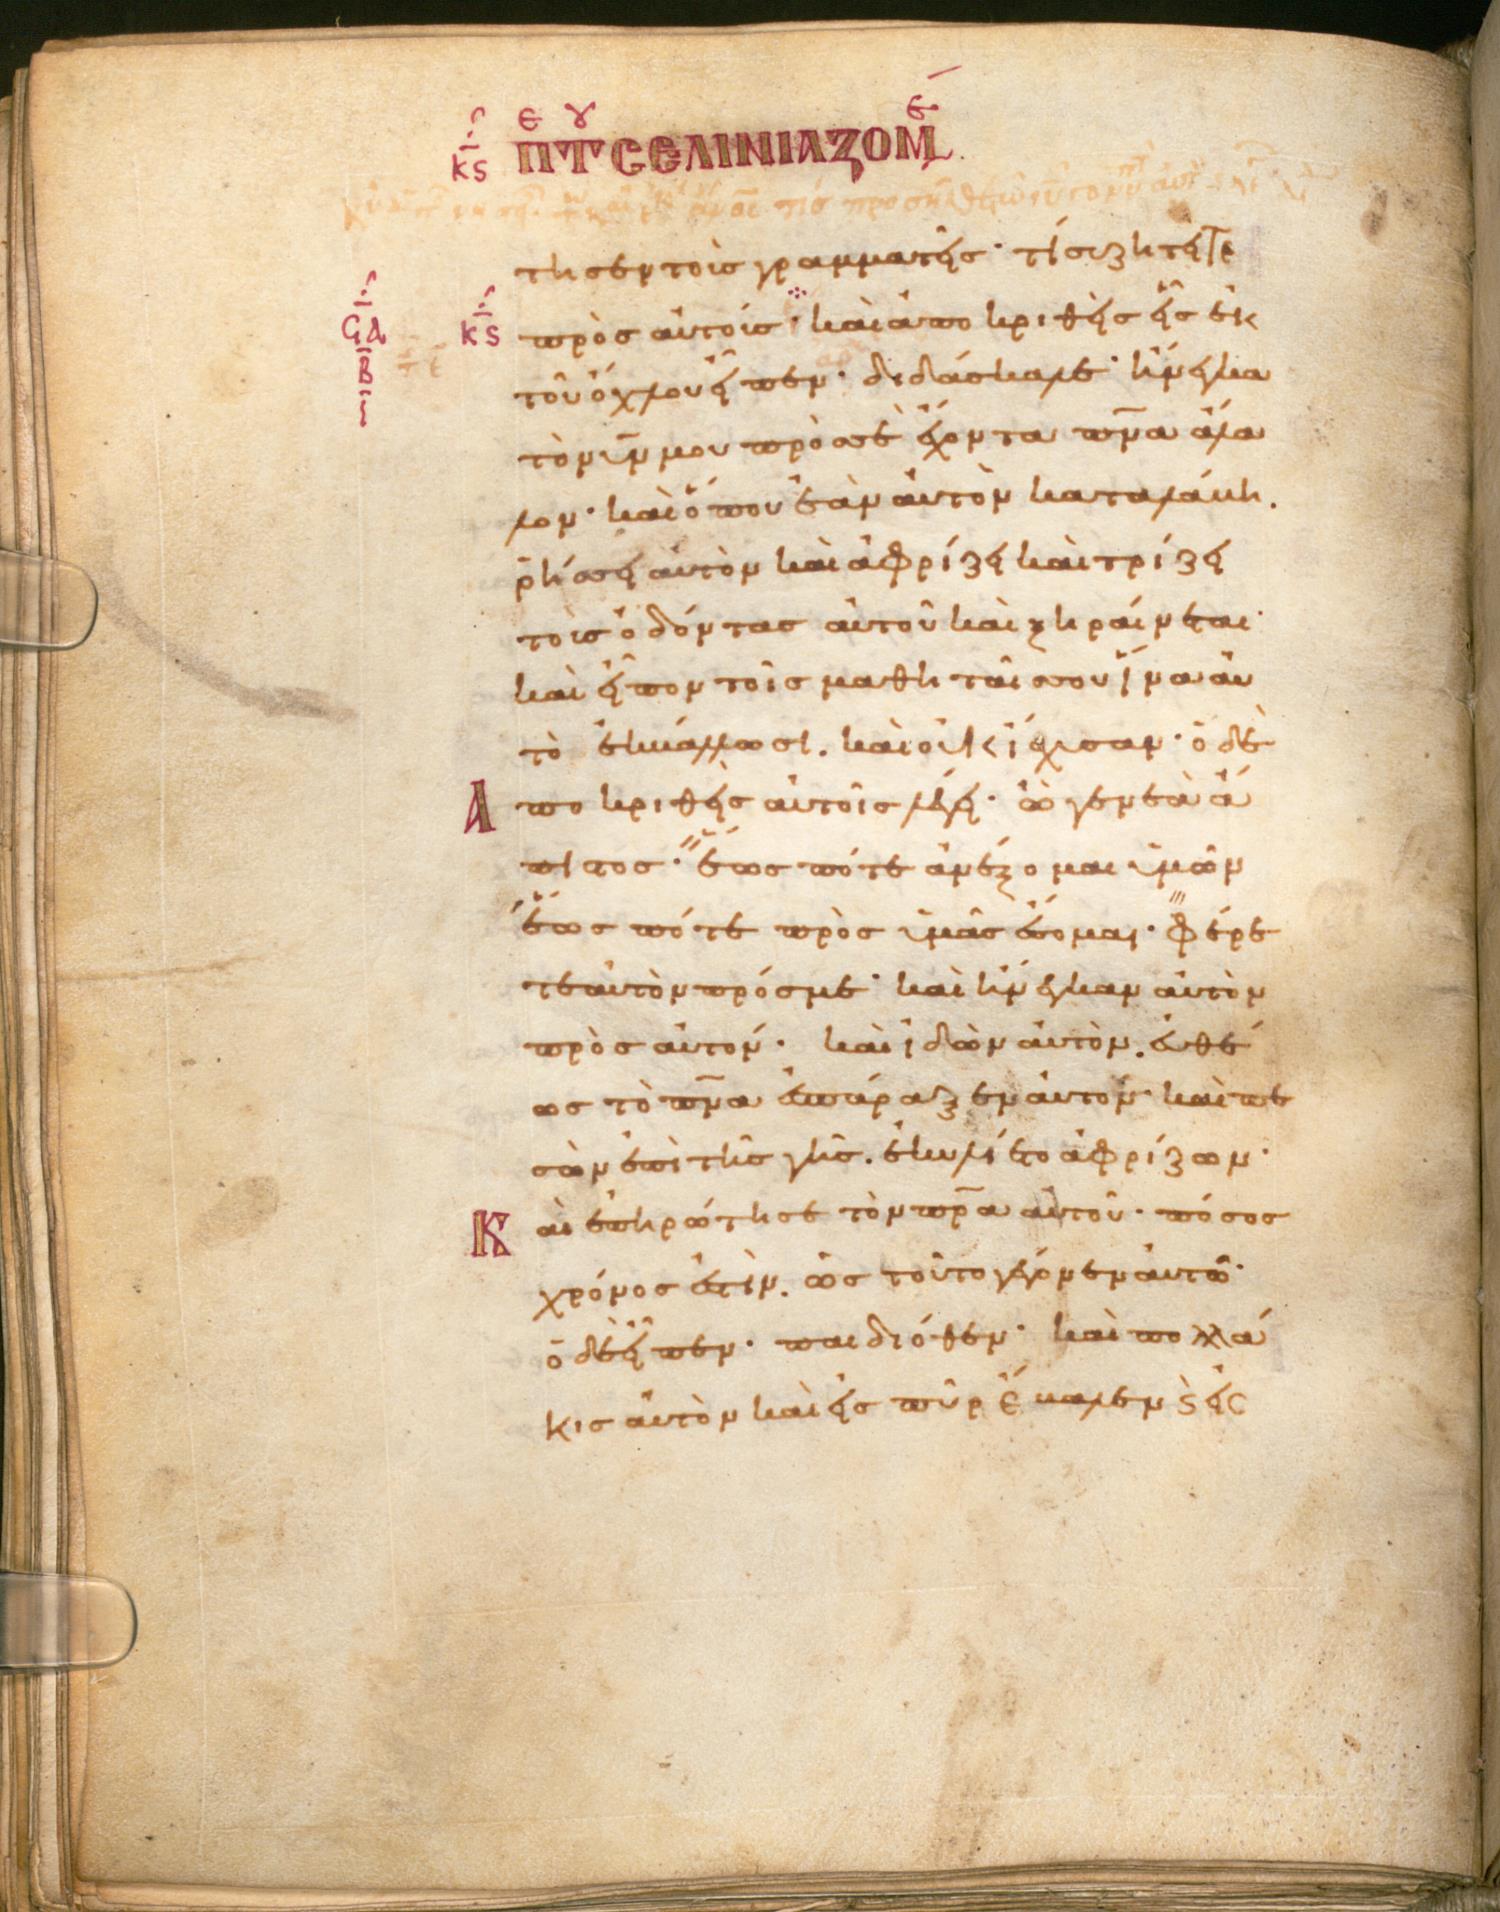 κς πτ σεληνιαζομ
τησεν τοῖς γραμματεῖς· τί συζητεῖτε
κς πρὸς αὐτούς· καὶ ἀποκριθεὶς εἷς ἐκ
τοῦ ὄχλου εἶπεν· διδάσκαλε· ἤνεγκα
τὸν υν̅ μου πρὸς σὲ ἔχοντα πν̅α ἄλα
λον· καὶ ὅπου ἐὰν αὐτὸν καταλάβη.
ῥήσσει αὐτὸν καὶ ἀφρίζει καὶ τρίζει
τοὺς ὀδόντας αὐτοῦ καὶ ξηραίνεται·
καὶ εἶπον τοῖς μαθηταῖς σου ἵνα αὐ
τὸ ἐκβάλλωσι. καὶ οὐκ ἴσχυσαν· ὁ δὲ
Α ποκριθεὶς αὐτοῖς λέγει· ὦ γενεὰ ἄ
πιστος· ἕως πότε ἀνέξομαι ὑμῶν
ἕως πότε πρὸς ὑμᾶς ἔσομαι· φέρε
τε αὐτὸν πρός με· καὶ ἤνεγκαν αὐτὸν
πρὸς αὐτόν· καὶ ἰδὼν αὐτὸν. εὐθέ
ως τὸ πν̅α ἐσπάραξεν αὐτόν· καὶ πε
σὼν ἐπὶ τῆς γῆς. ἐκυλίετο ἀφρίζων·
Κ αὶ ἐπηρώτησε τὸν πρ̅α αὐτοῦ· πόσος
χρόνος ἐστὶν. ὡς τοῦτο γέγονεν αὐτῶ·
ὁ δὲ εἶπεν· παιδιόθεν· καὶ πολλά
κις αὐτὸν καὶ εἰς πῦρ ἔβαλεν ϛ̀ εἰς